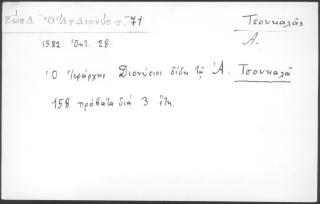 Ζώη Λ "Ο Ἅγ. Διονύσ σ. 71
Τσουκαλᾶς
Α.
1582 Ὀκτ. 28
Ὁ Διονύσιος δίδει τῷ Ἀ. Τσουκαλᾷ
158 πρόβατα διά 3 ἔτη.